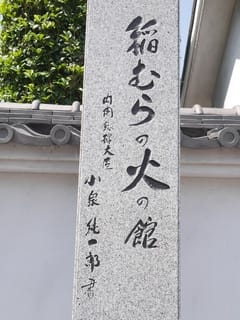 稲むらの火の館
内閣総理大臣
小泉純一郎書